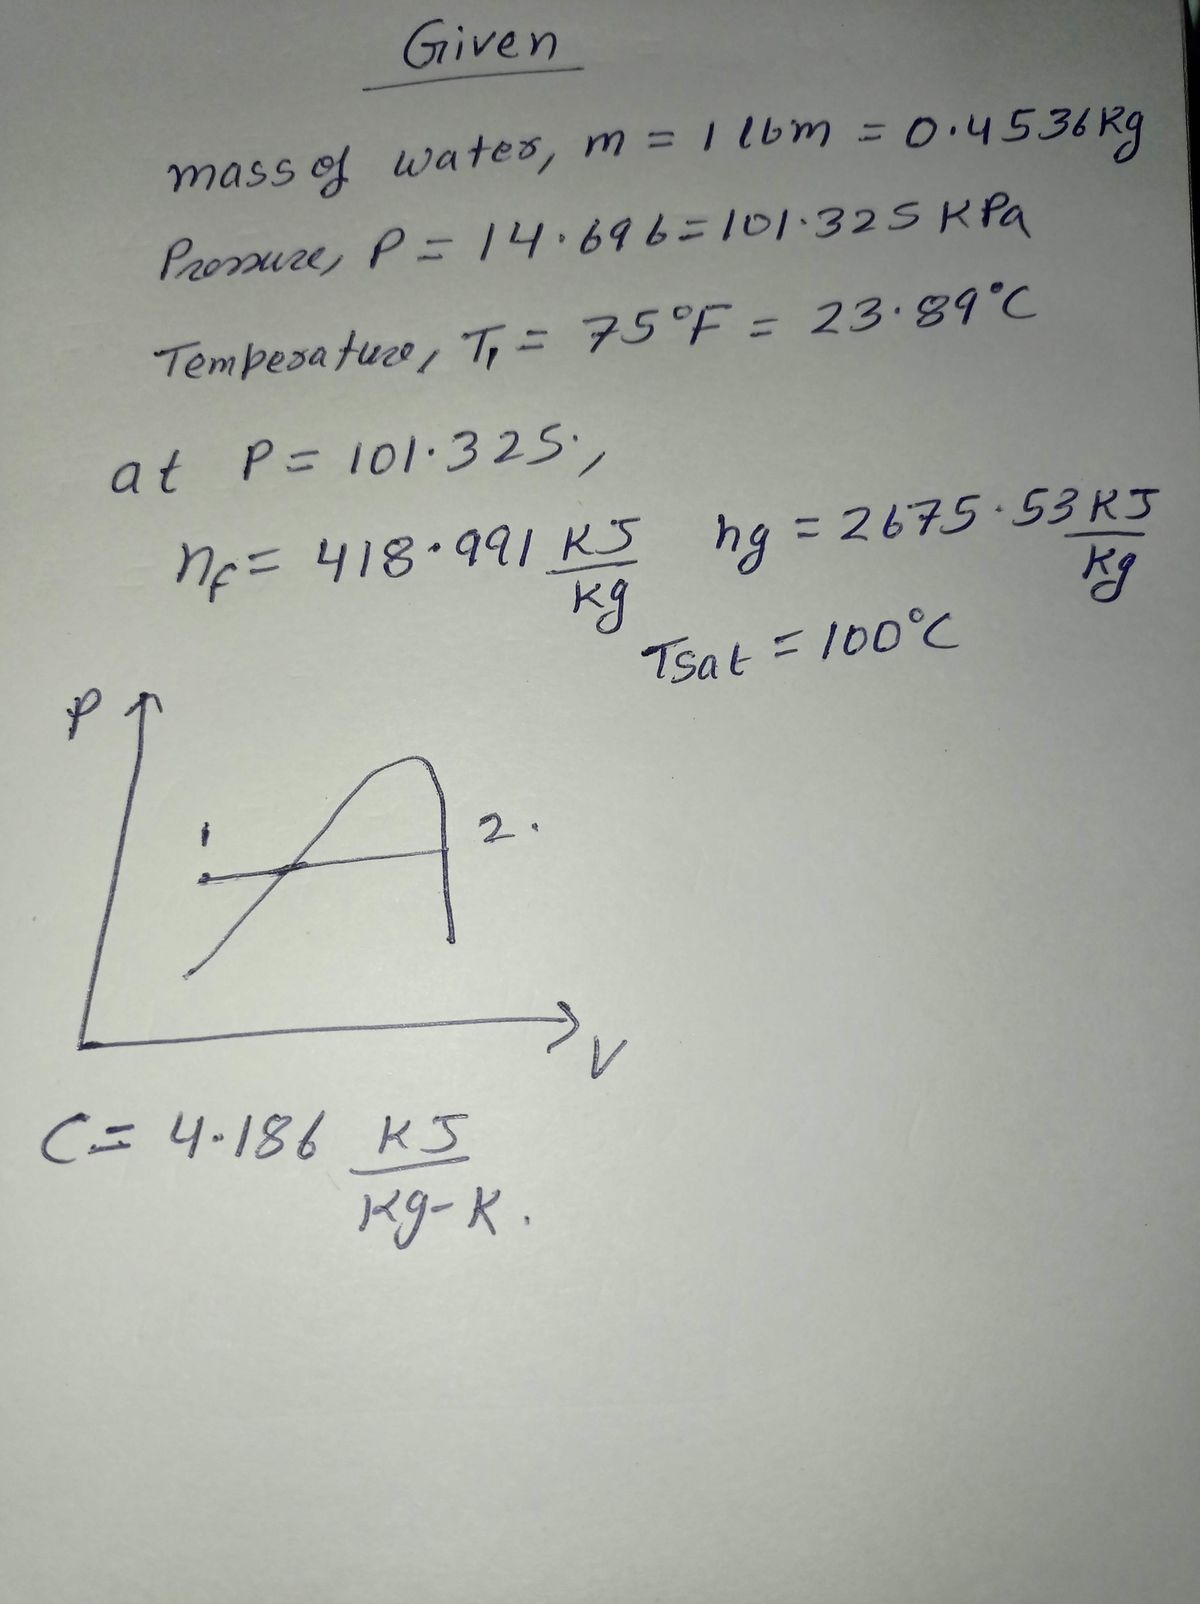 Given
mass of water, m = 1 lbm = 0.4536 kg
Pressure, P = 14.696 = 101.325 KPa
Temperature, T₁ = 75°F = 23.89°C
at P = 101.325.,
hf = 418.991 KJ/kg hg = 2675.53 KJ/kg
Tsat = 100°C
P
1 2.
V
C = 4.186 KJ/Kg-K.